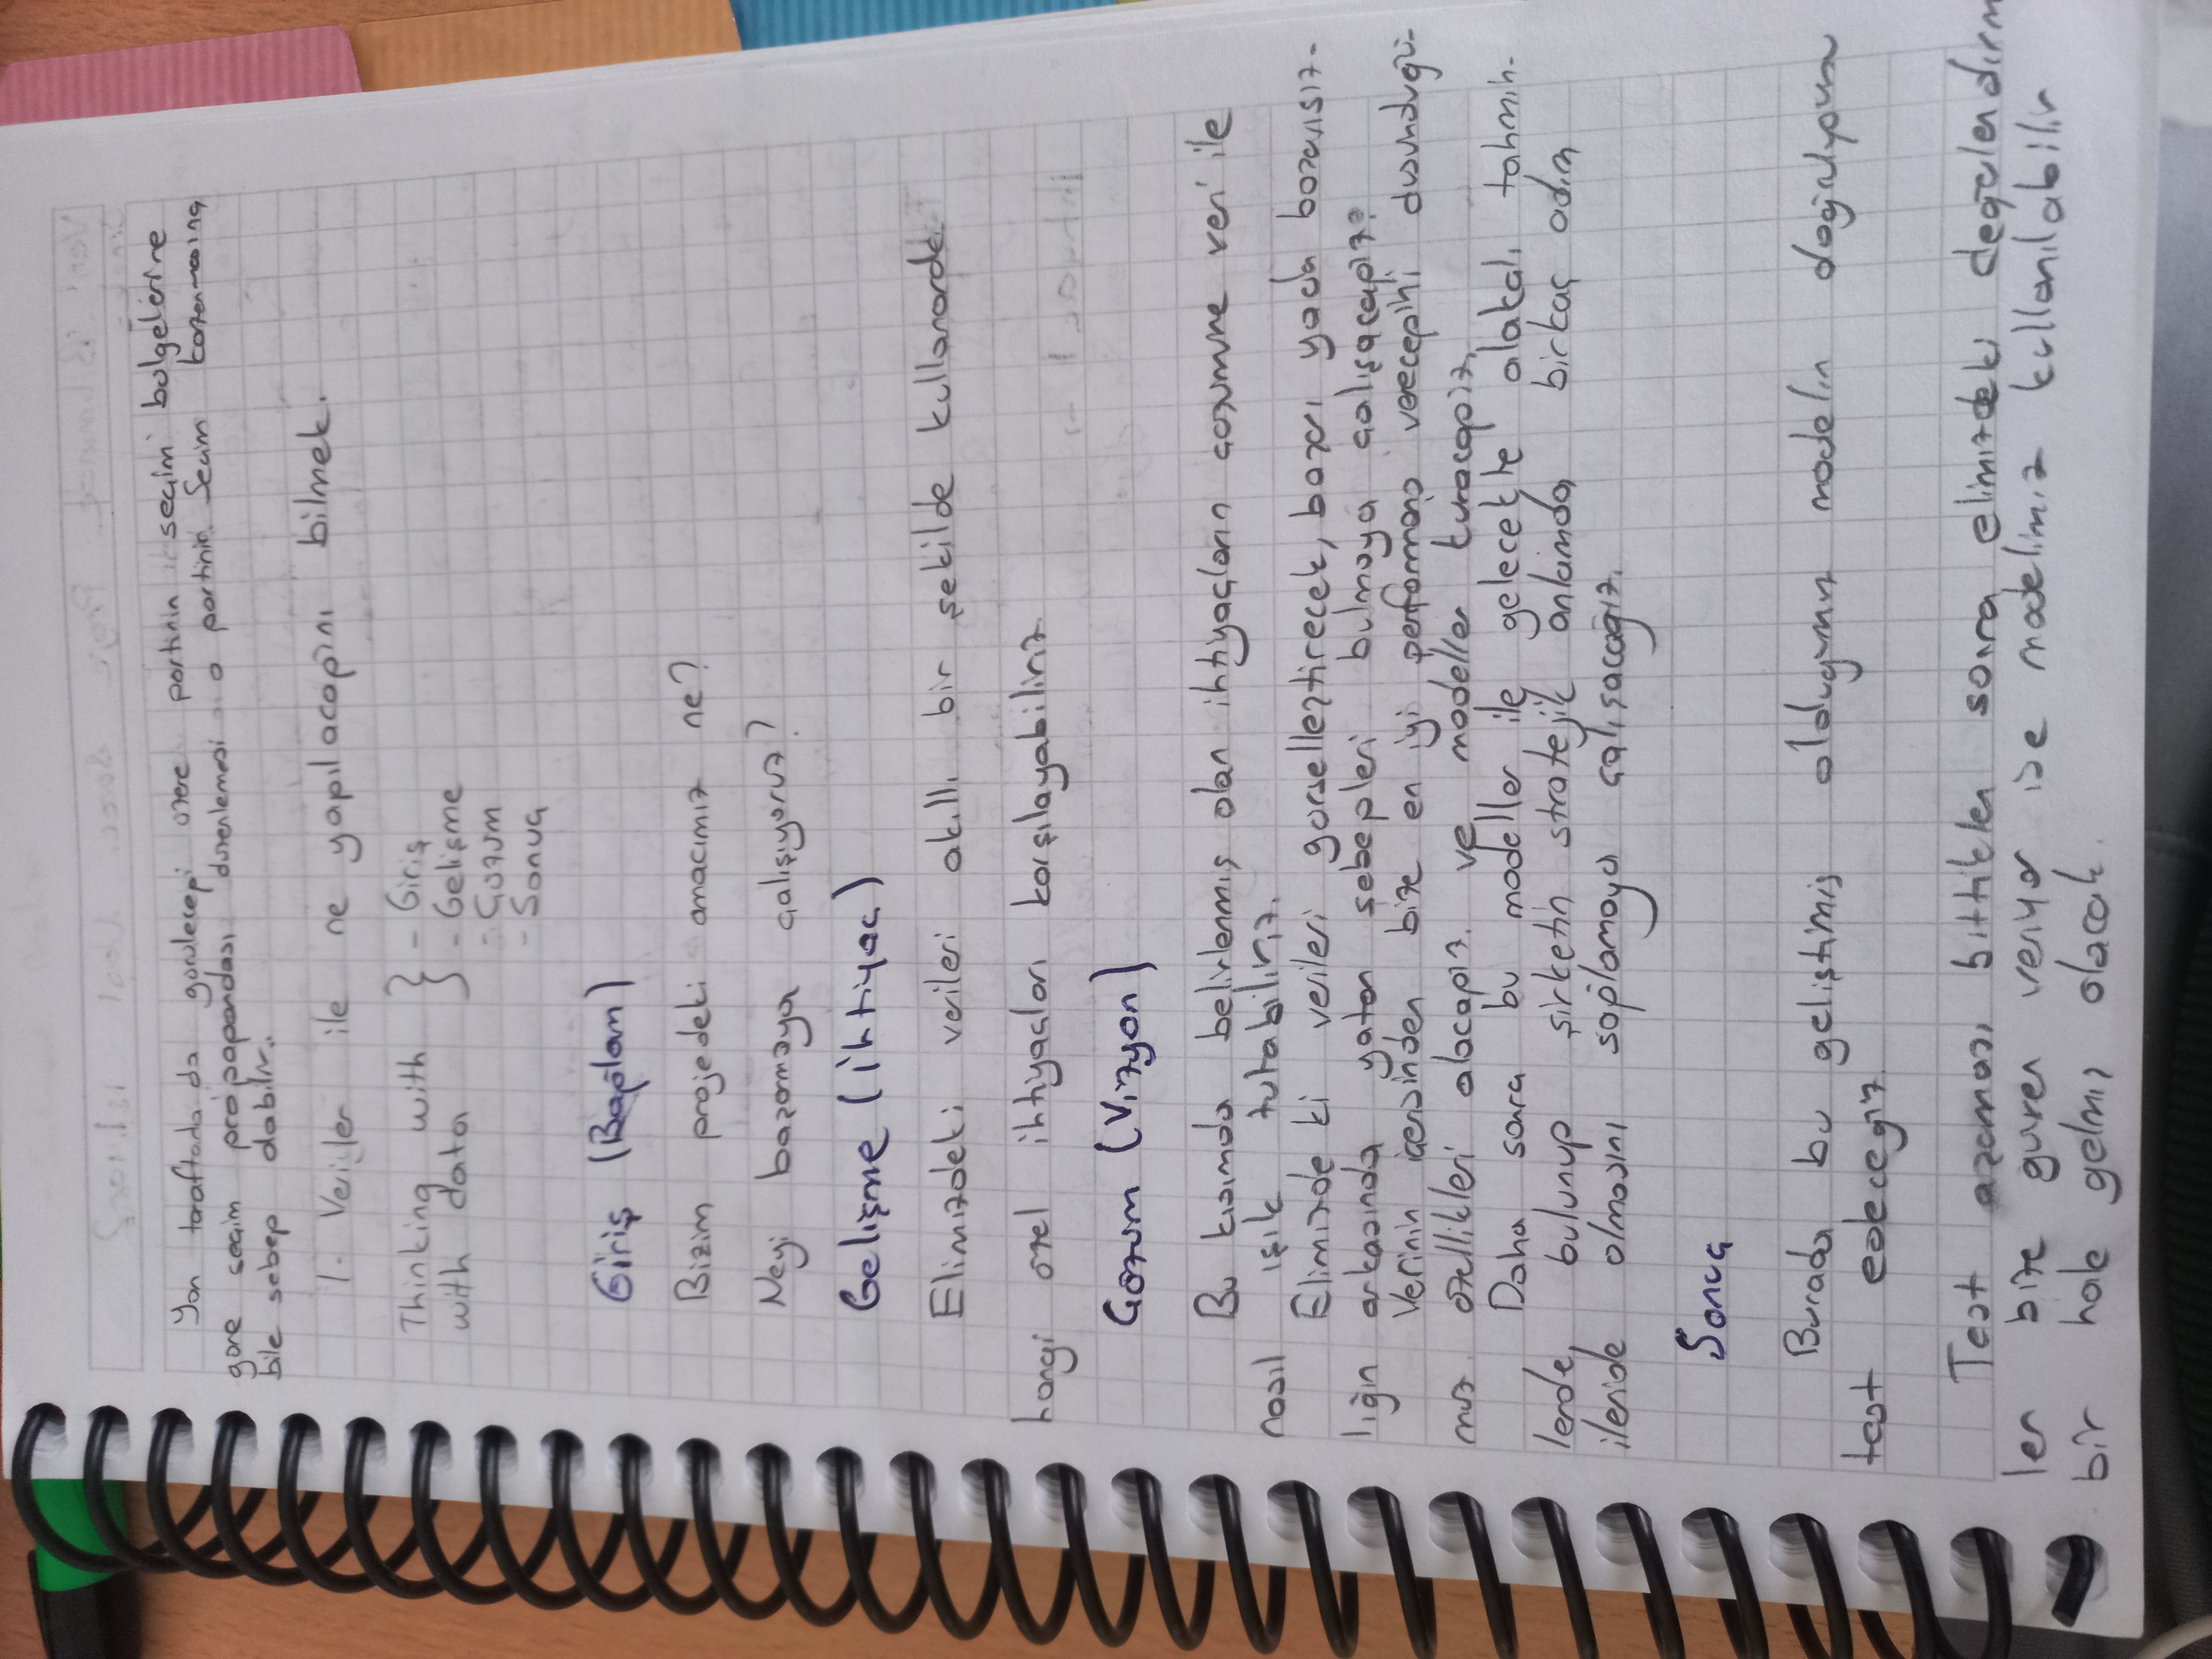 Yan taraftada da görüleceği üzere partinin seçim bölgelerine
göre seçim propagandası düzenlemesi o partinin Seçim kazanmasına
bile sebep olabilir.
1. Veriler ile ne yapılacağını bilmek.
Thinking with } - Giriş
with data - Gelişme
- Çözüm
- Sonuç
Giriş (Bağlam)
Bizim projedeki amacımız ne?
Neyi başarmaya çalışıyoruz?
Gelişme (İhtiyaç)
Elimizdeki verileri akıllı bir şekilde kullanarak
hangi özel ihtiyaçları karşılayabiliriz.
Çözüm (Vizyon)
Bu kısımda belirlenmiş olan ihtiyaçların çözümüne veri ile
nasıl ışık tutabiliriz.
Elimizde ki verileri görselleştirecek, başarı yada başarısız-
lığın arkasında yatan sebepleri bulmaya çalışacağız.
Verinin içerisinden bize en iyi performans vereceğini düşündüğü-
müz özellikleri alacağız. ve modeller kuracağız.
Daha sonra bu modeller ile gelecekte alakalı tahmin-
lerde, bulunup şirketin stratejik anlamda birkaç adım
ileride olmasını sağlamaya çalışacağız.
Sonuç
Burada bu geliştimiş olduğumuz modelin doğruluğunu
test edeceğiz.
Test aşaması bittikten sonra elimizdeki değerlendirm
ler bize güven veriyor ise modelimiz kullanılabilir
bir hale gelmiş olacak.